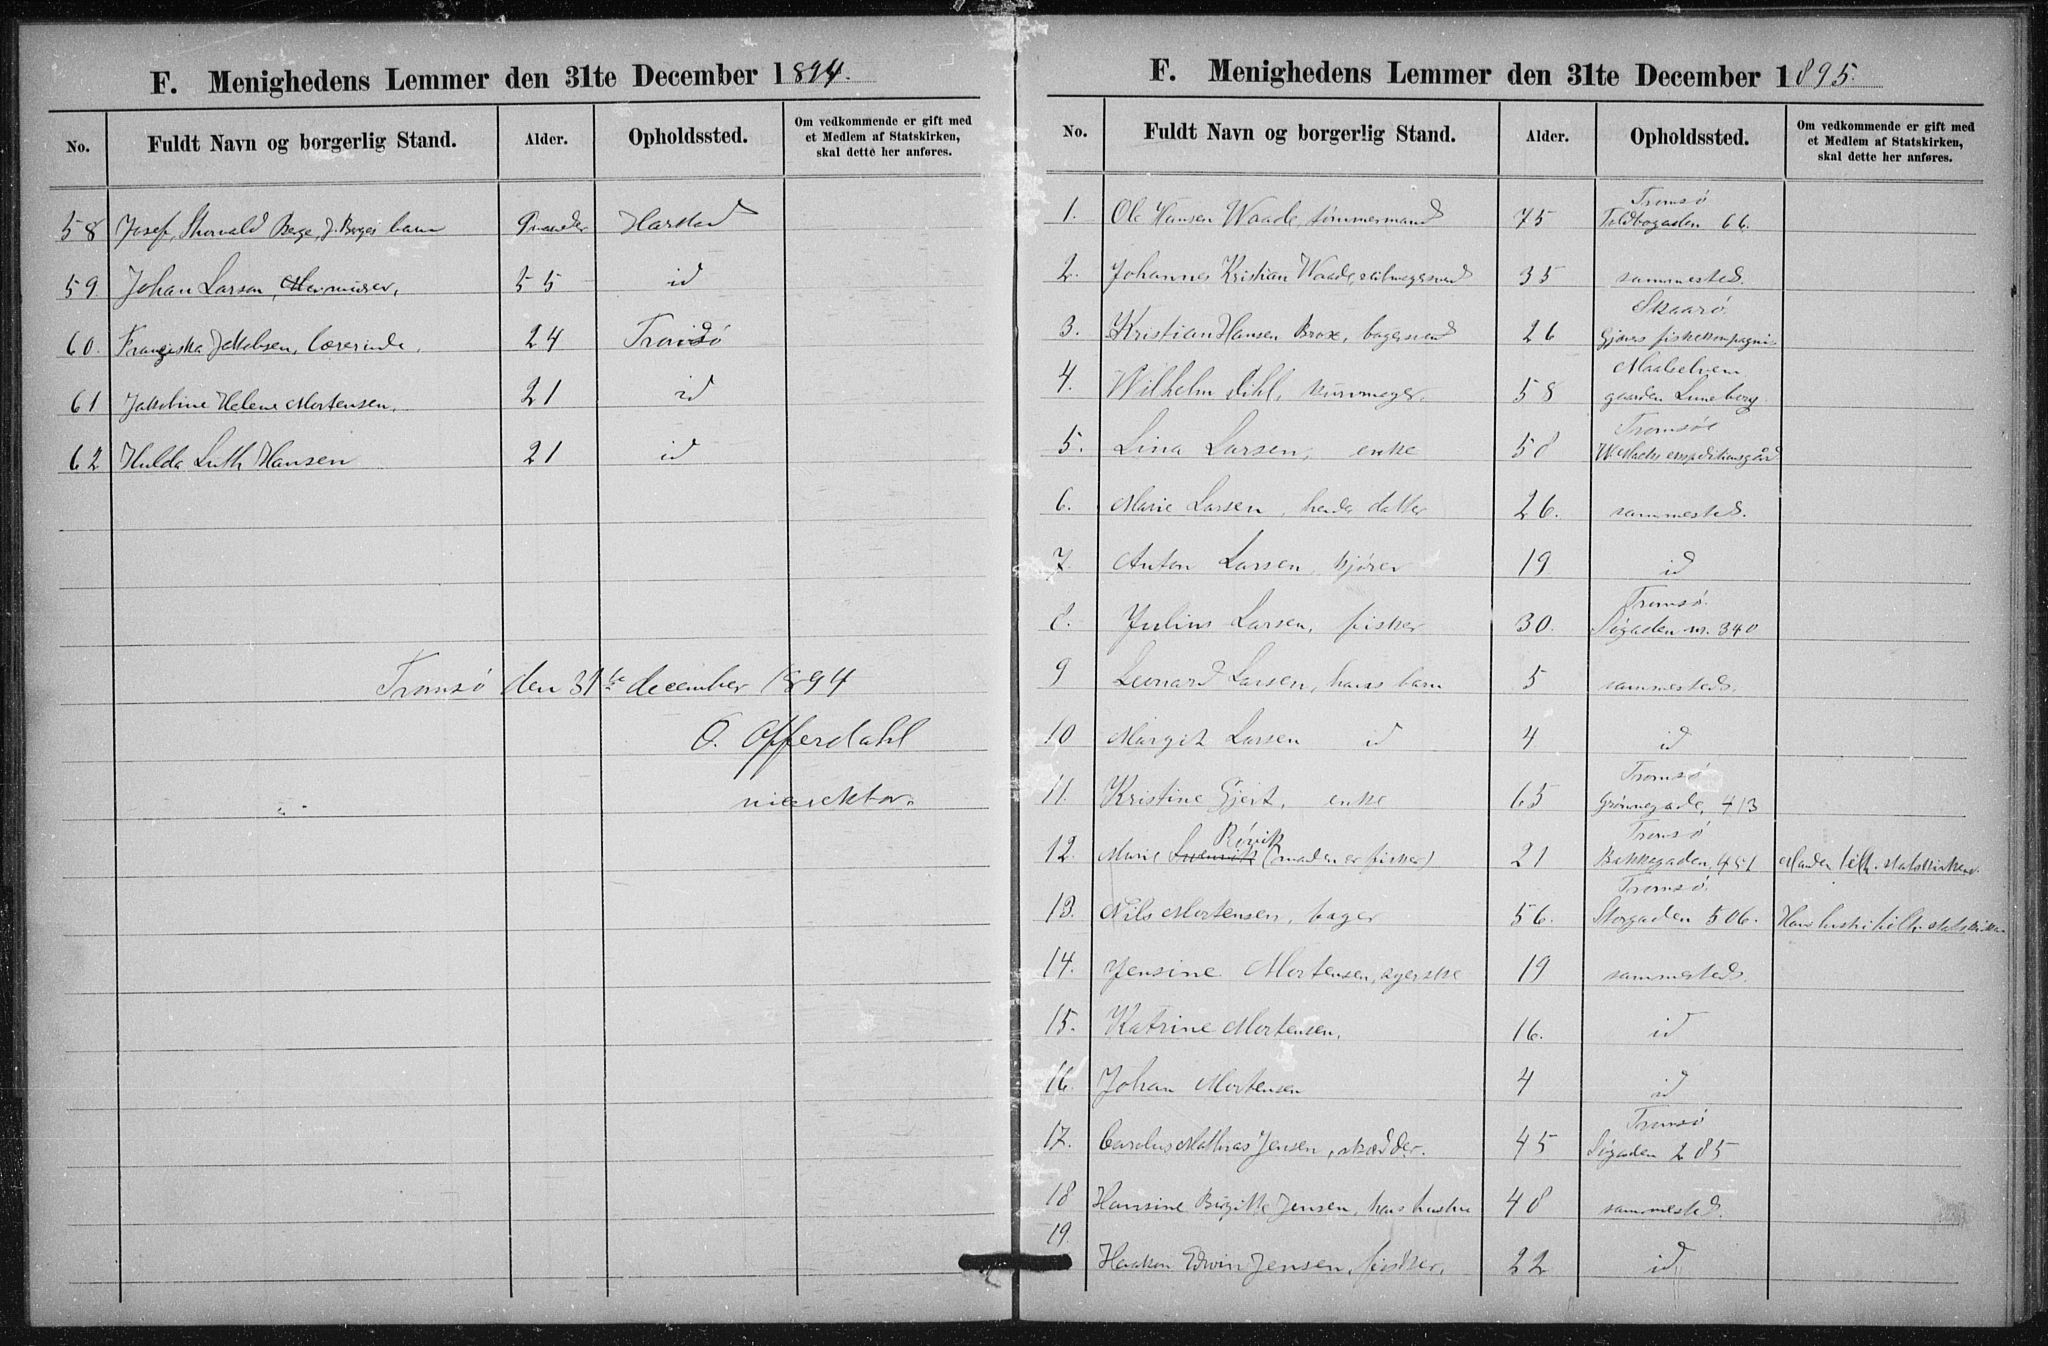 F. Menighedens Lemmer den 31te December 1894.
No. Fuldt Navn og borgerlig Stand. Alder. Opholdssted. Om vedkommende er gift med
et Medlem af Statskirken,
skal dette her anføres.
58 Josef Thorvald Berge, J. Berges barn 9 maander Harstad
59 Johan Larsen, 55 id
60. Franziska Jakobsen, lærerinde, 24 Tromsø
61 Jakobine Helene Mortensen. 21 id
62 Hulda Luth Hansen 21 id
Tromsø den 31te december 1894
O. Offerdahl
vicerektor.
F. Menighedens Lemmer den 31te December 1895.
No. Fuldt Navn og borgerlig Stand. Alder. Opholdssted. Om vedkommende er gift med
et Medlem af Statskirken,
skal dette her anføres.
Tromsø
1. Ole Hansen Waade, tømmermand 75 Toldbogaden 66.
2. Johannes Kristian Waade, seilmagersvend 35 sammesteds.
Skaarø.
3. Kristian Hansen Brox, bagersvend 26 Gjævers fiskekompagni
Maalselven
4. Wilhelm Dihl, buntmager. 58 gaarden Luneborg.
Tromsøe
5. Lina Larsen, enke 58 W. Macks expeditionsgård
6. Marie Larsen, hendes datter 26. sammesteds.
7. Anton Larsen, kjører 19 id
Tromsø.
8. Julius Larsen, fisker 30. Søgaden nr. 340
9 Leonard Larsen, hans barn 5 sammesteds.
10 Margit Larsen id 4 id
Tromsø
11. Kristine Gjert, enke 65 Grønnegade, 413
Rørvik Tromsø
12. Marie (manden er fisker) 21 Bakkegaden, 451 Manden tilh. statskirken.
Tromsø.
13. Nils Mortensen, bager 56. Storgaden 506. Hans hustru tilh. statskirken
14. Jensine Mortensen, syerske 19 sammesteds.
15. Katrine Mortensen. 16. id
16. Johan Mortensen 4 id
Tromsø
17. Carolus Mathias Jensen, skrædder. 45 Søgaden 285
18 Hansine Birgitte Jensen, hans hustru 48 sammesteds.
19. Haakon Edvin Jensen, fisker. 22 id